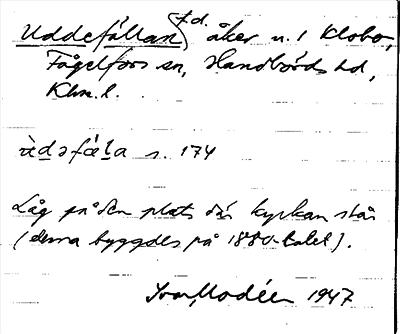 Uddefállan, f.d. åker u. 1 Klobo,
Fågelfors sn, Handbörds hd,
Klm. l.
ùdəfæla s. 174
Låg på den plats där kyrkan står
(denna byggdes på 1880-talet).
Ivar Modéer 1947